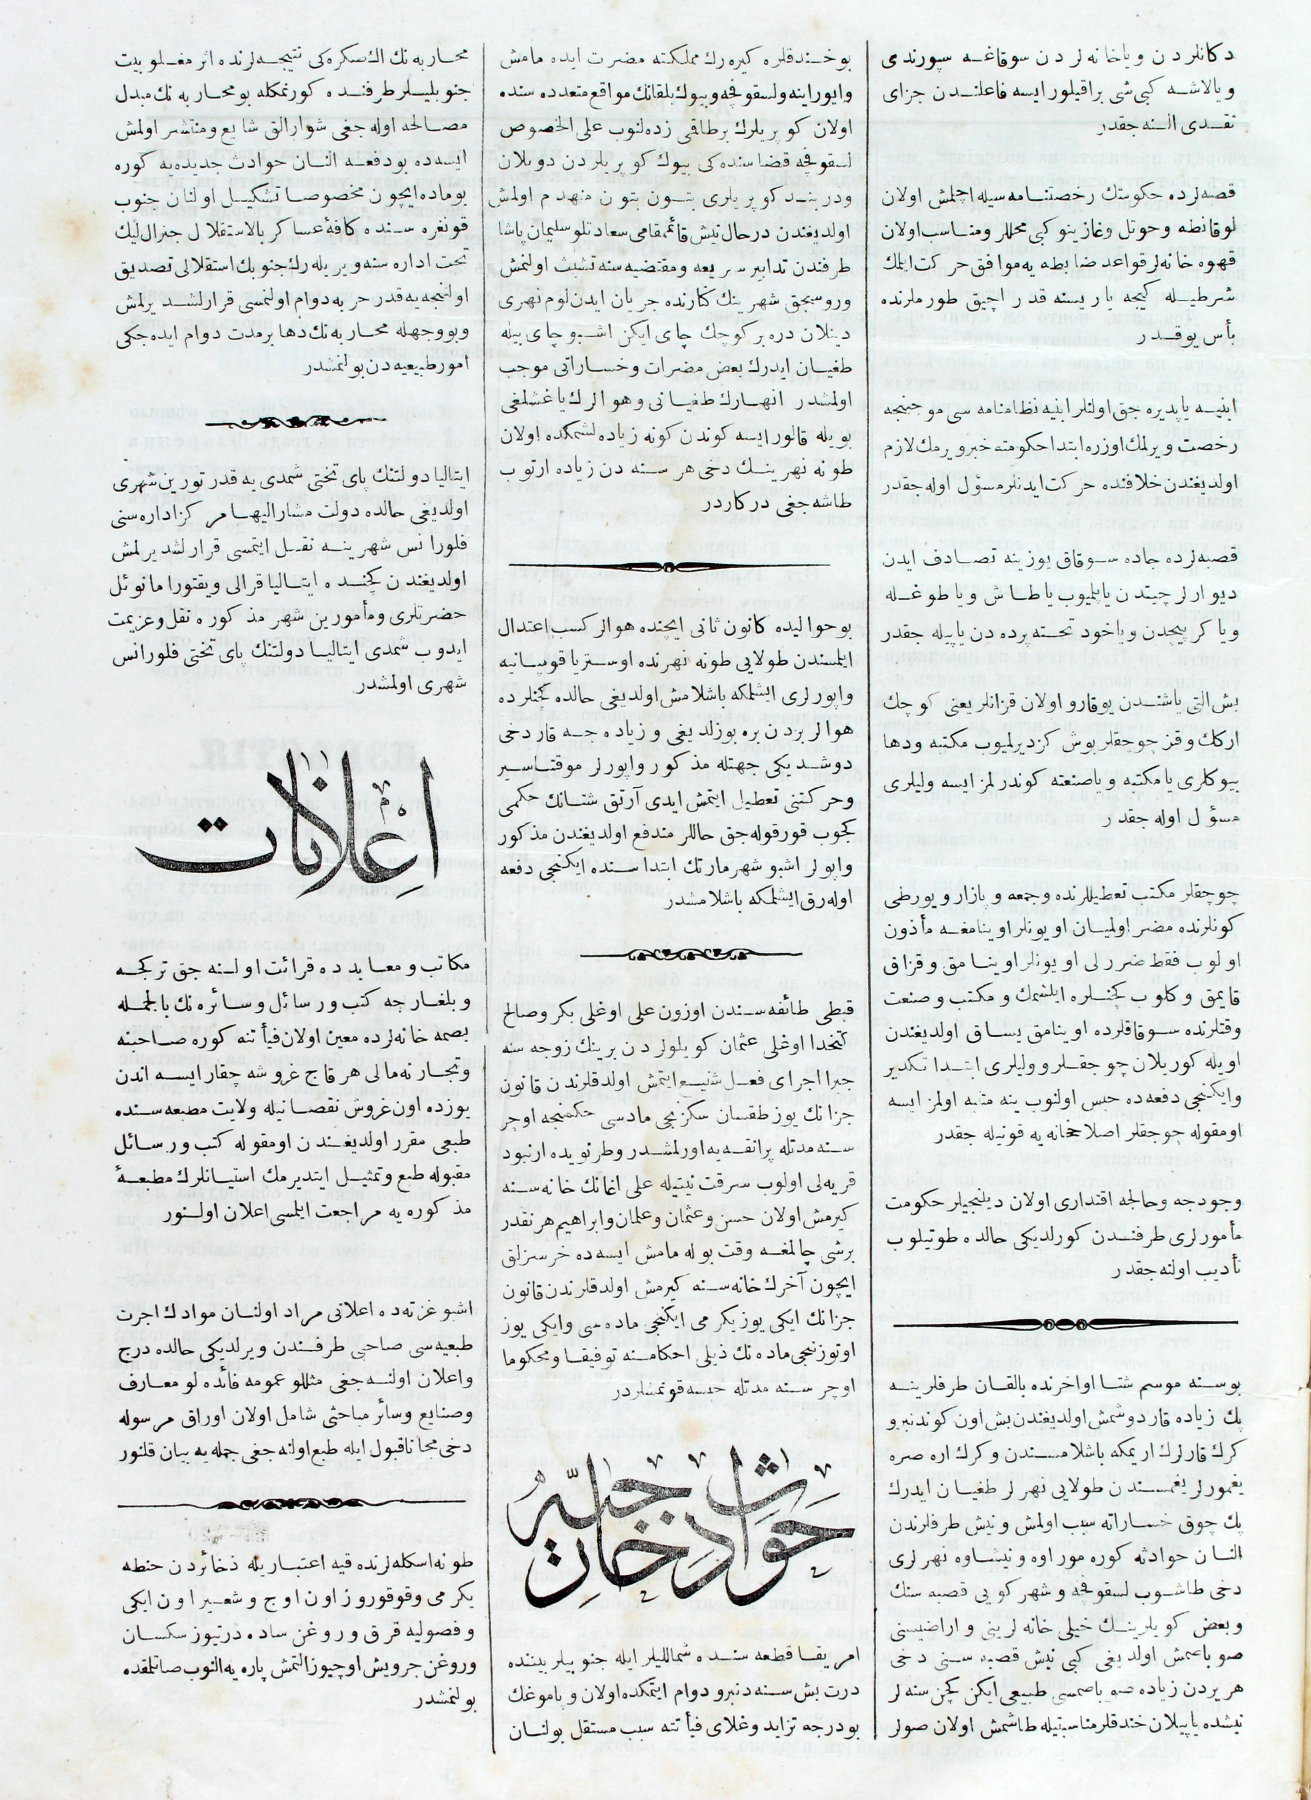 دكانلردن ویاخانه‌لردن سوقاغه سپورندی
ویالاشه كبی شی براقیلور ایسه فاعلندن جزای
نقدی النه جقدر
قصبه‌لرده حكومتك رخصتنامه سیله اچلمش اولان
لوقانطه وحوتل وغازینو كبی محللر ومناسب اولان
قهوه خانه‌لر قواعد ضابطه یه موافق حركت ایلمك
شرطیله كیجه یاریسنه قدر اچیق طورملرنده
بأس یوقدر
ابنیه یاپدیره جق اولنلر ابنیه نظامنامه سی موجبنجه
رخصت ویرلمك اوزره ابتدا حكومته خبر ویرمك لازم
اولدیغندن خلافنده حركت ایدنلر مسؤل اوله جقدر
قصبه‌لرده جاده سوقاق یوزینه تصادف ایدن
دیوارلر چیتدن یاپلمیوب یا طاش ویا طوغله
ویا كرپیچدن ویاخود تخته پرده دن یاپیله جقدر
بش التی یاشندن یوقارو اولان قزانلر یعنی كوچك
اركك وقز چوجقلر بوش كزدیرلمیوب مكتبه ودها
بیوكلری یا مكتبه ویا صنعته كوندرلمز ایسه ولیلری
مسؤل اوله جقدر
چوجقلر مكتب تعطیللرنده وجمعه و پازار و یورطی
كونلرنده مضر اولمیان اویونلر اوینامغه مأذون
اولوب فقط ضررلی اویونلر اوینامق وقزاق
قایمق و كلوب كچنلره ایلشمك و مكتب وصنعت
وقتلرنده سوقاقلرده اوینامق یساق اولدیغندن
اویله كوریلان چوجقلر وولیلری ابتدا تكدیر
وایكنجی دفعه ده حبس اولنوب ینه متنبه اولمز ایسه
اومقوله چوجقلر اصلاحخانه یه قونیله جقدر
وجودجه وحالجه اقتداری اولان دیلنجیلر حكومت
مأمورلری طرفندن كورلدیكی حالده طوتیلوب
تأدیب اولنه جقدر
بوسنه موسم شتا اواخرنده بالقان طرفلرینه
پك زیاده قار دوشمش اولدیغندن بش اون كوندنبرو
كرك قارلرك اریمكه باشلامسندن وكرك اره صره
یغمورلر یغمسندن طولایی نهرلر طغیان ایدرك
پك چوق خساراته سبب اولمش ونیش طرفلرندن
النان حوادثه كوره موراوه ونیشاوه نهرلری
دخی طاشوب لسقوفچه و شهركویی قصبه سنك
وبعض كویلرینك خیلی خانه لرینی واراضیسنی
صو باصمش اولدیغی كبی نیش قصبه سنی دخی
هر یردن زیاده صو باصمسی طبیعی ایكن كچن سنه لر
نیشده یاپیلان خندقلر مناسبتیله طاشمش اولان صولر
بوخندقلره كیره رك مملكته مضرت ایده مامش
وایوراینه ولسقوفچه وبیوك بلقانك مواقع متعدده سنده
اولان كوپریلرك برطاقی زده لنوب علی الخصوص
لسقوفچه قضاسنده كی بیوك كوپریلردن دویلان
ودربند كوپریلری بتون بتون منهدم اولمش
اولدیغندن درحال نیش قائمقامی سعادتلو سلیمان پاشا
طرفندن تدابیر سریعه ومقتضیه سنه تشبث اولنمش
وروسجق شهرینك كنارنده جریان ایدن لوم نهری
دینلان دره بر كوچك چای ایكن اشبو چای بیله
طغیان ایدرك بعض مضرات وخساراتی موجب
اولمشدر انهارك طغیانی وهوالرك یاغشلغی
بویله قالور ایسه كوندن كونه زیاده لشمكده اولان
طونه نهرینك دخی هر سنه دن زیاده ارتوب
طاشه جغی دركاردر
بوحوالیده كانون ثانی ایچنده هوالر كسب اعتدال
ایلمسندن طولایی طونه نهرنده اوستریا قوپانیه
واپورلری ایشلمكه باشلامش اولدیغی حالده كچنلرده
هوالر بردن بره بوزلدیغی و زیاده جه قار دخی
دوشدیكی جهتله مذكور واپورلر موقتا سیر
وحركتنی تعطیل ایتمش ایدی آرتق شتانك حكمی
كچوب قورقوله جق حاللر مندفع اولدیغندن مذكور
واپورلر اشبو شهر مارتك ابتداسنده ایكنجی دفعه
اوله رق ایشلمكه باشلامشدر
قبطی طائفه سندن اوزون علی اوغلی بكر وصالح
كتخدا اوغلی عثمان كویلولردن برینك زوجه سنه
جبرا اجرای فعل شنیع ایتمش اولدقلرندن قانون
جزانك یوز طقسان سكزنجی مادسی حكمنجه اوچر
سنه مدتله پرانغه یه اورلمشدر وطرنویده ارنبود
قریه لی اولوب سرقت نیتیله علی اغانك خانه سنه
كیرمش اولان حسن وعثمان وعلمان وابراهیم هر نقدر
برشی چالمغه وقت بوله مامش ایسه ده خرسزلق
ایچون آخرك خانه سنه كیرمش اولدقلرندن قانون
جزانك ایكی یوز یكرمی ایكنجی ماده سی وایكی یوز
اوتوزنجی ماده نك ذیلی احكامنه توفیقا ومحكوما
اوچر سنه مدتله حبسه قونمشلردر
حوادث خارجیه
امریقا قطعه سنده شماللیلر ایله جنوبیلر بیننده
درت بش سنه دنبرو دوام ایتمكده اولان و پاموغك
بودرجه تزاید وغلای فیأتنه سبب مستقل بولنان
محاربه نك الك صكره كی نتیجه لرنده اثر مغلوبیت
جنوبلیلر طرفنده كورنمكله بومحاربه نك مبدل
مصالحه اوله جغی شوارالق شایع ومنتشر اولمش
ایسه ده بودفعه النان حوادث جدیده یه كوره
بوماده ایچون مخصوصا تشكیل اولنان جنوب
قونغره سنده كافه عساكر بالاستقلال جنرال لیك
تحت اداره سنه ویریله رك جنوبك استقلالی تصدیق
اولنمجه یه قدر حربه دوام اولنمسی قرارلشدیرلمش
وبووجهله محاربه نك دها برمدت دوام ایده جكی
امور طبیعیه دن بولنمشدر
ایتالیا دولتنك پای تختی شمدی یه قدر تورین شهری
اولدیغی حالده دولت مشارالیها مركز اداره سنی
فلورانس شهرینه نقل ایتمسی قرارلشدیرلمش
اولدیغندن كچنده ایتالیا قرالی ویقتورا مانوئل
حضرتلری ومأمورین شهر مذكوره نقل وعزیمت
ایدوب شمدی ایتالیا دولتنك پای تختی فلورانس
شهری اولمشدر
اعلانات
مكاتب ومعابدده قرائت اولنه جق تركجه
وبلغارجه كتب ورسائل وسائره نك بالجمله
بصمه خانه لرده معین اولان فیأتنه كوره صاحبنه
وتجارنه مالی هر قاچ غروشه چقار ایسه اندن
یوزده اون غروش نقصانیله ولایت مطبعه سنده
طبعی مقرر اولدیغندن اومقوله كتب ورسائل
مقبوله طبع وتمثیل ایتدیرمك استیانلرك مطبعهٔ
مذكوره یه مراجعت ایلمسی اعلان اولنور
اشبو غزته ده اعلانی مراد اولنان موادك اجرت
طبعیه سی صاحبی طرفندن ویرلدیكی حالده درج
واعلان اولنه جغی مثللو عمومه فائده لو معارف
وصنایع وسائر مباحثی شامل اولان اوراق مرسوله
دخی مجانا قبول ایله طبع اولنه جغی جمله یه بیان قلنور
طونه اسكله لرنده قیه اعتباریله ذخائردن حنطه
یكرمی وقوقوروز اون اوچ و شعیر اون ایكی
وفصولیه قرق وروغن ساده درتیوز سكسان
وروغن جرویش اوچیوز التمش پاره یه النوب صاتلمقده
بولنمشدر